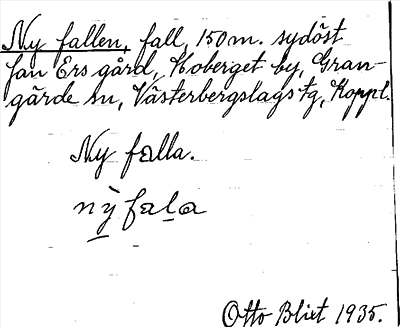 Ny fallen, fall, 150 m. sydöst
fan Ers gård, Hoberget by, Gran-
gärde sn, Västerbergslags tg, Koppl.
Ny falla.
nỳ fala
Otto Blixt 1935.